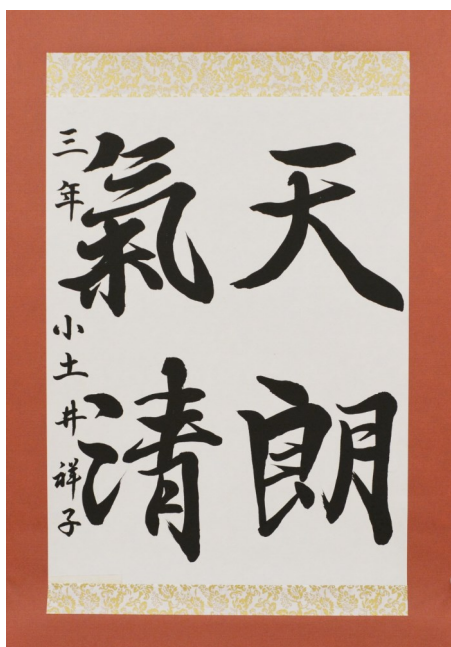 天朗
氣清
三年 小土井祥子